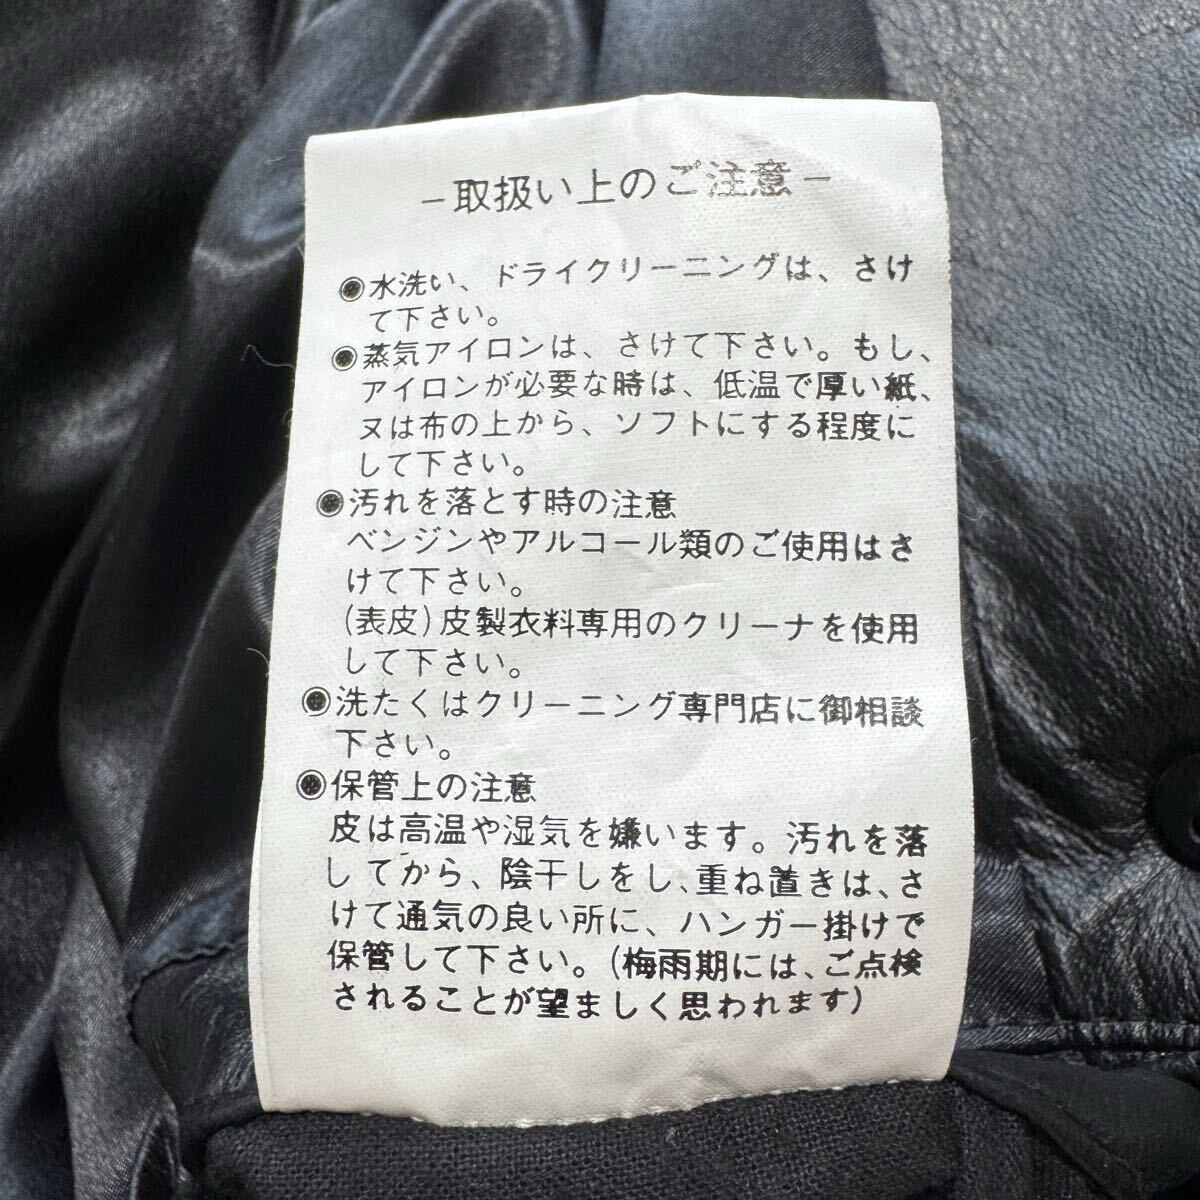 －取扱い上のご注意－
◉水洗い、ドライクリーニングは、さけ
て下さい。
◉蒸気アイロンは、さけて下さい。もし、
アイロンが必要な時は、低温で厚い紙、
又は布の上から、ソフトにする程度に
して下さい。
◉汚れを落とす時の注意
ベンジンやアルコール類のご使用はさ
けて下さい。
(表皮)皮製衣料専用のクリーナを使用
して下さい。
◉洗たくはクリーニング専門店に御相談
下さい。
◉保管上の注意
皮は高温や湿気を嫌います。汚れを落
してから、陰干しをし、重ね置きは、さ
けて通気の良い所に、ハンガー掛けで
保管して下さい。(梅雨期には、ご点検
されることが望ましく思われます)